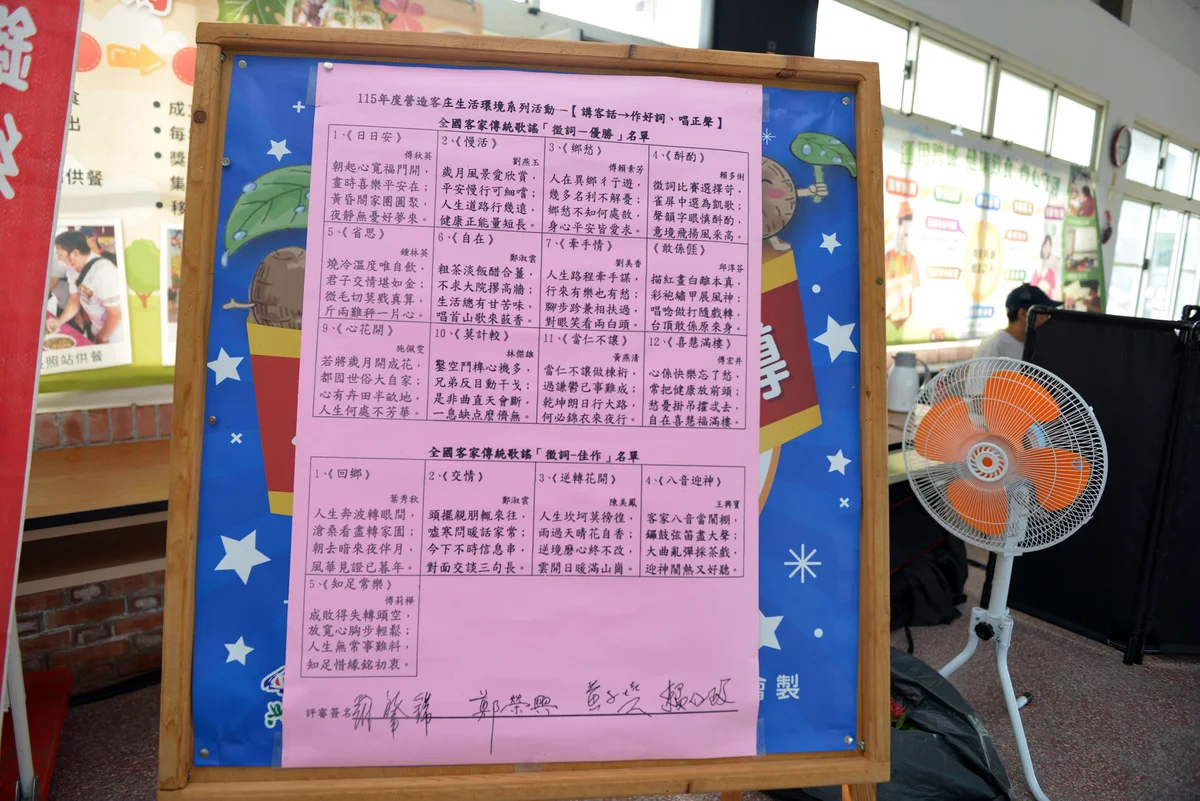 115年度營造客庄生活環境系列活動—【講客話→作好詞、唱正聲】
全國客家傳統歌謠「徵詞—優勝」名單
1、《日日安》
傅秋英
朝起心寬福門開，
晝時喜樂平安在；
黃昏閤家團圓聚，
夜靜無憂好夢來。
2、《慢活》
劉燕玉
歲月風景愛欣賞，
平安慢行可細嚐；
人生道路行幾遠，
健康正能量短長。
3、《鄉愁》
傅賴素芳
人在異鄉孑行遊，
幾多名利不解憂；
鄉愁不知何處放，
身心平安皆愛求。
4、《斟酌》
賴多俐
徵詞比賽選擇苛，
雀屏中選為凱歌；
聲韻字眼慎斟酌，
意境飛揚風采高。
5、《省思》
鍾林英
燒冷溫度唯自飲，
君子交情堪如金；
微毛切莫戥真算，
斤兩難秤一片心。
6、《自在》
鄭淑雲
粗茶淡飯醋合薑，
不求大院摎高牆；
生活總有甘苦味，
唱首山歌來鼓香。
7、《牽手情》
劉美香
人生路程牽手謀，
行來有樂也有愁；
腳步跈兼相扶過，
對眼笑看兩白頭。
《敢係𠊎》
邱淳芬
描紅畫白離本真，
彩袍繡甲展風神；
唱唸做打隨戲轉，
台頂敢係原來身。
9、《心花開》
施佩雯
若將歲月開成花，
都囥世俗大自家；
心有卉田半畝地，
人生何處不芳華。
10、《莫計較》
林傑雄
鑿空鬥榫心機多，
兄弟反目動干戈；
是非曲直天會斷，
一息缺点麼儕無。
11、《當仁不讓》
黃燕清
當仁不讓做棟術，
過謙鬱己事難成；
乾坤朗日行大路，
何必錦衣來夜行。
12、《喜慧滿樓》
傅宏井
心係快樂忘了愁，
常把健康放前頭；
愁憂掛吊擐忒去，
自在喜慧福滿樓。
全國客家傳統歌謠「徵詞—佳作」名單
1、《回鄉》
葉秀秋
人生奔波轉眼間，
滄桑看盡轉家園；
朝去暗來夜伴月，
風華見證已暮年。
2、《交情》
鄭淑雲
頭擺親朋輒來往，
噓寒問暖話家常；
今下不時信息串，
對面交談三句長。
3、《逆轉花開》
陳美鳳
人生坎坷莫徬徨，
雨過天晴花自香；
逆境磨心終不改，
雲開日暖滿山崗。
4、《八音迎神》
王興寶
客家八音當鬧棚，
鑼鼓弦笛盡大聲；
大曲亂彈採茶戲，
迎神鬧熱又好聽。
5、《知足常樂》
傅莉樺
成敗得失轉頭空，
放寬心胸步輕鬆；
人生無常事難料，
知足惜緣銘初衷。
評審簽名
鄭榮興
繪製
照站供餐
供餐